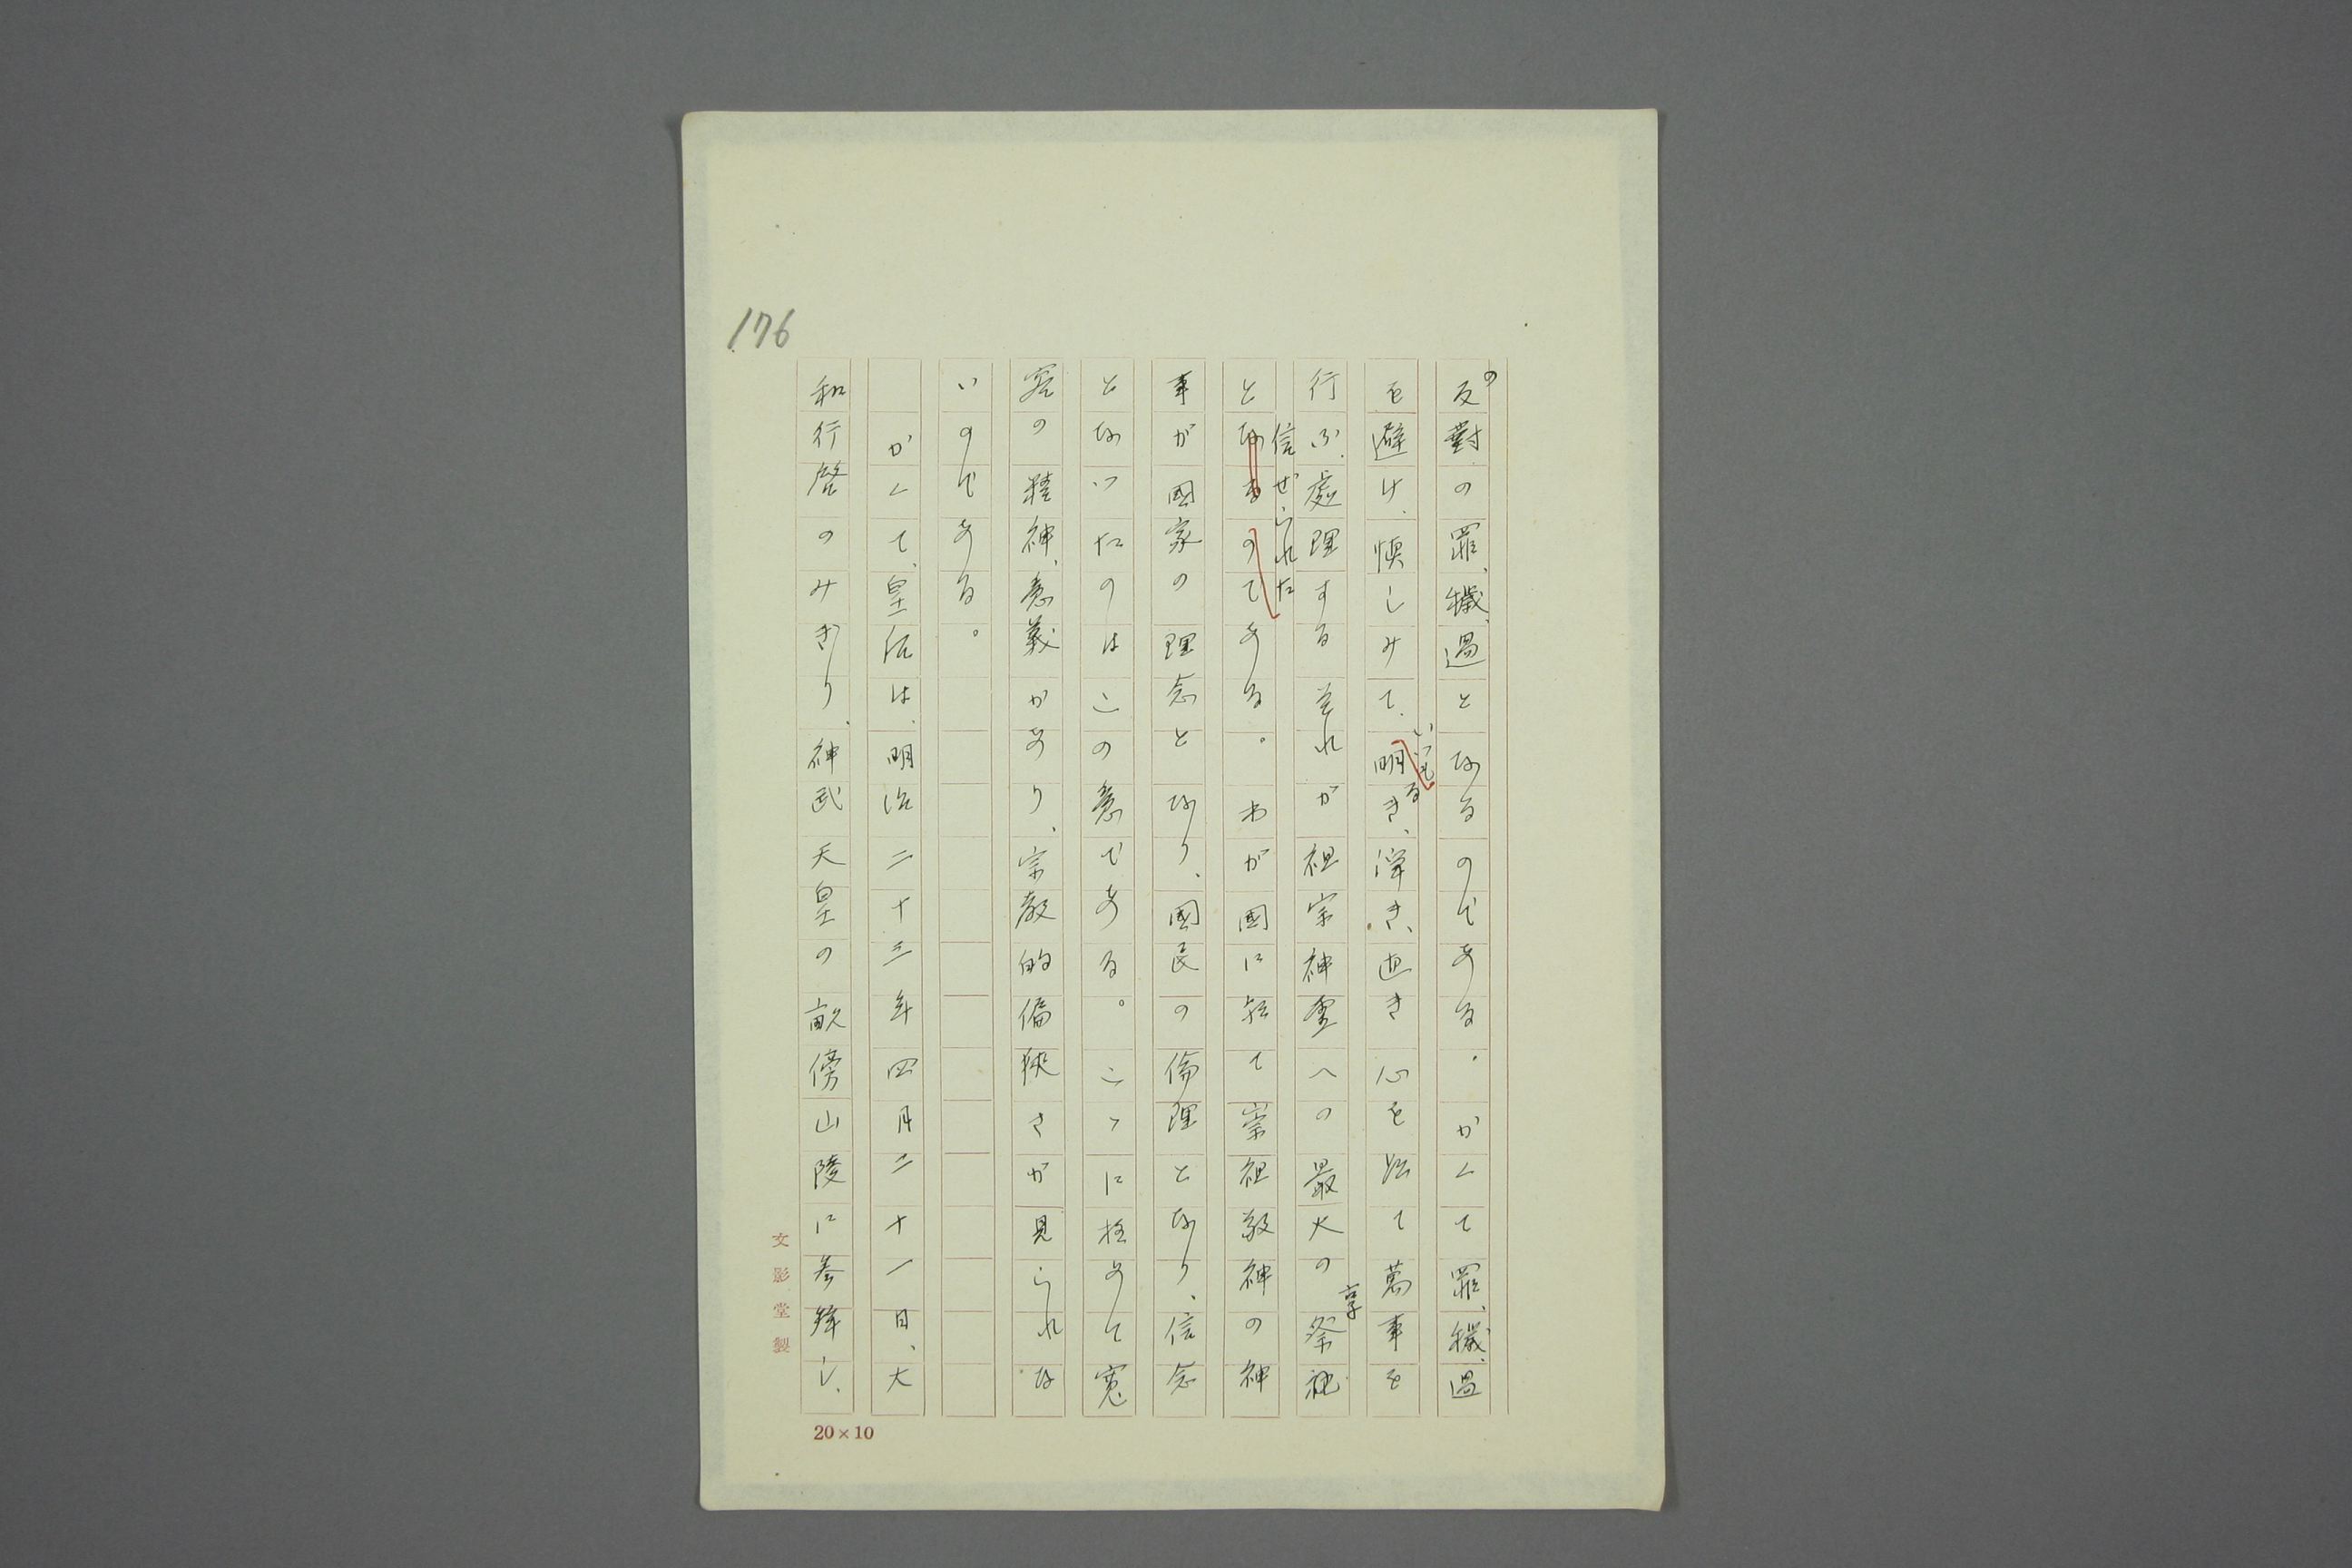 176
の
反對の罪、穢、過となるのである。かくて罪、穢、過
いつも
る
を避け、愼しみて、明き、淨き、直き心を以て萬事を
享
行ふ、處理するそれが祖宗神靈への最大の祭祀
信ぜられた
となるのである。わが國に於て崇祖敬神の神
事が國家の理念となり、國民の倫理となり、信念
となつたのはこの意である。こゝに極めて寛
容の精神、意義があり、宗教的偏狹さが見られな
いのである。
かくて、皇后は、明治二十三年四月二十一日、大
和行啓のみぎり、神武天皇の畝傍山陵に参拜し、
文影堂製
20×10